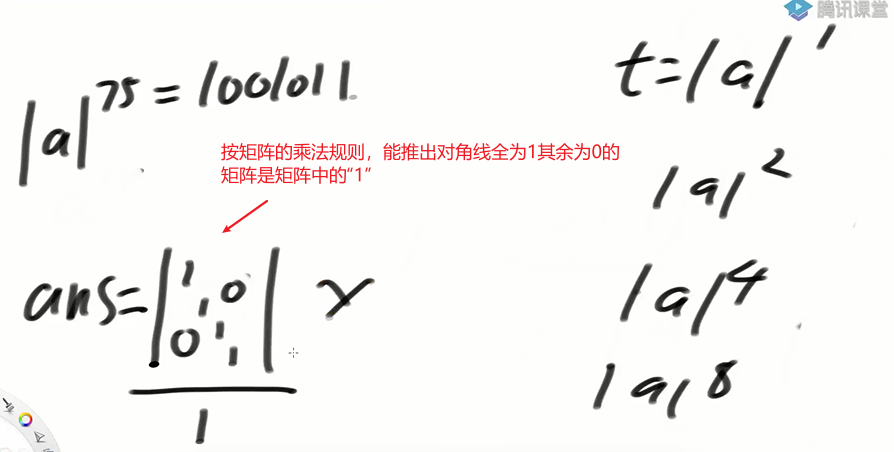 腾讯课堂
|a|^75 = 1001011.
t=|a|^1
按矩阵的乘法规则，能推出对角线全为1其余为0的
矩阵是矩阵中的“1”
|a|^2
ans=
1
1 0
0 1
1
|a|^4
|a|^8
1